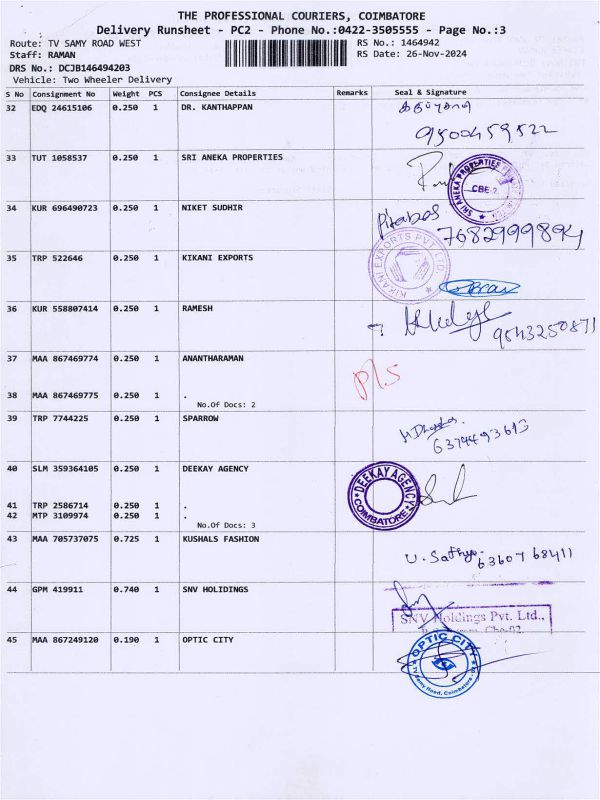 THE PROFESSIONAL COURIERS, COIMBATORE
Delivery Runsheet - PC2 - Phone No.:0422-3505555 - Page No.:3
Route: TV SAMY ROAD WEST RS No.: 1464942
Staff: RAMAN RS Date: 26-Nov-2024
DRS No.: DCJB146494203
Vehicle: Two Wheeler Delivery
S No Consignment No Weight PCS Consignee Details Remarks Seal & Signature
32 EDQ 24615106 0.250 1 DR. KANTHAPPAN
33 TUT 1058537 0.250 1 SRI ANEKA PROPERTIES
SRI ANEKA PROPERTIES
CBE-2
34 KUR 696490723 0.250 1 NIKET SUDHIR
Pitabas 7682999894
35 TRP 522646 0.250 1 KIKANI EXPORTS
KIKANI EXPORTS PVT. LTD.
36 KUR 558807414 0.250 1 RAMESH
9843250871
37 MAA 867469774 0.250 1 ANANTHARAMAN
P/S
38 MAA 867469775 0.250 1 .
No.Of Docs: 2
39 TRP 7744225 0.250 1 SPARROW
40 SLM 359364105 0.250 1 DEEKAY AGENCY
DEEKAY AGENCY
COIMBATORE
41 TRP 2586714 0.250 1 .
42 MTP 3109974 0.250 1 .
No.Of Docs: 3
43 MAA 705737075 0.725 1 KUSHALS FASHION
U. Sathya. 63607 68411
44 GPM 419911 0.740 1 SNV HOLIDINGS
SNV Holdings Pvt. Ltd.,
45 MAA 867249120 0.190 1 OPTIC CITY
OPTIC CITY
Samy Road, Coimbatore